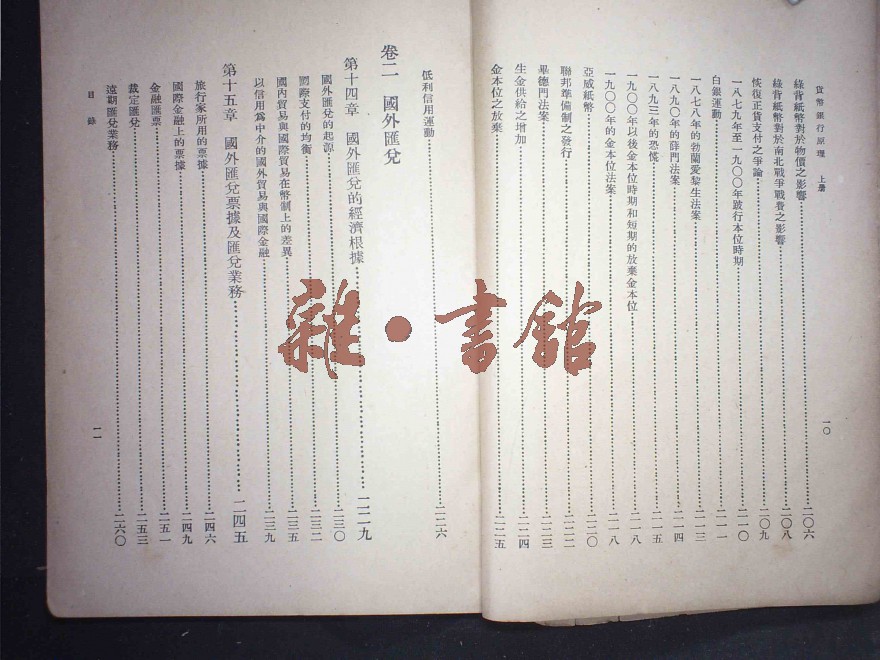 貨幣銀行原理 上册
綠背紙幣對於物價之影響……二〇六
綠背紙幣對於南北戰爭戰費之影響……二〇八
恢復正貨支付之爭論……二〇九
一八七九年至一九〇〇年跛行本位時期……二一〇
白銀運動……二一一
一八七八年的勃蘭愛黎生法案……二一三
一八九〇年的薛門法案……二一四
一八九三年的恐慌……二一五
一九〇〇年以後金本位時期和短期的放棄金本位……二一八
一九〇〇年的金本位法案……二一八
亞威紙幣……二二〇
聯邦準備制之發行……二二二
畢德門法案……二二三
生金供給之增加……二二四
金本位之放棄……二二五
一〇
低利信用運動……二二六
卷二 國外匯兌
第十四章 國外匯兌的經濟根據……二二九
國外匯兌的起源……二三〇
國際支付的均衡……二三二
國內貿易與國際貿易在幣制上的差異……二三五
以信用爲中介的國外貿易與國際金融……二三九
第十五章 國外匯兌票據及匯兌業務……二四五
旅行家所用的票據……二四六
國際金融上的票據……二四九
金融匯票……二五一
裁定匯兌……二五三
遠期匯兌業務……二六〇
目錄
一一
雜·書館